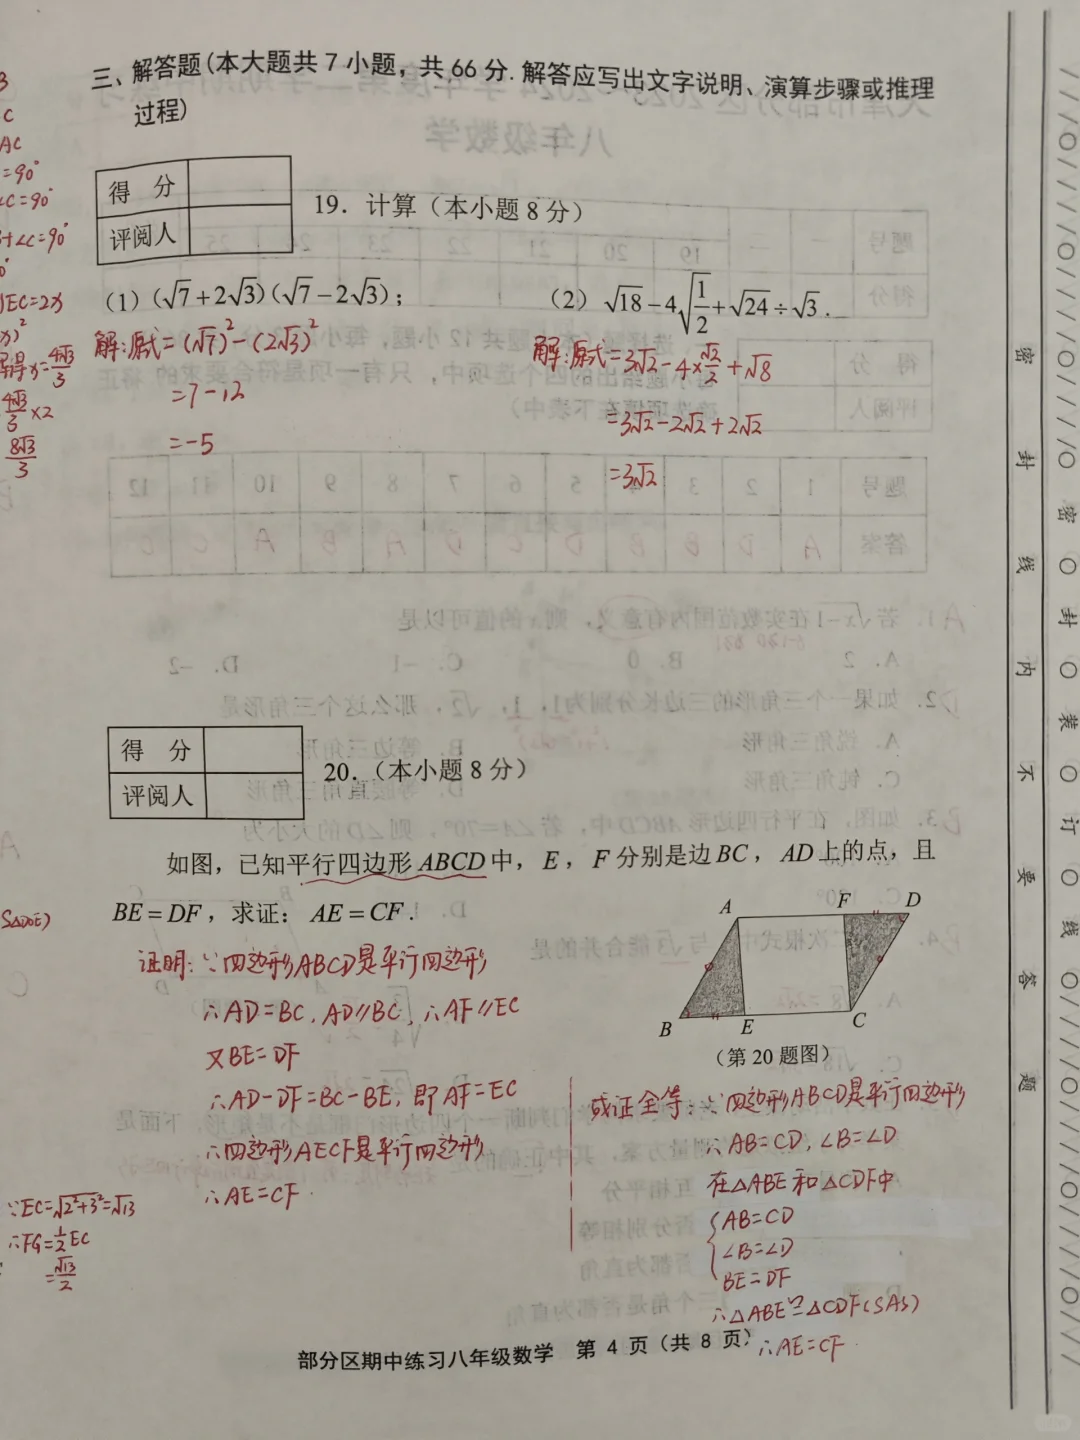 三、解答题(本大题共7小题，共66分.解答应写出文字说明、演算步骤或推理
过程)
得 分
评阅人
19. 计算（本小题8分）
(1) (√7+2√3)(√7-2√3)；
(2) √18-4√(1/2)+√24÷√3.
解:原式=(√7)²-(2√3)²
=7-12
=-5
解:原式=3√2-4×√2/2+√8
=3√2-2√2+2√2
=3√2
得 分
评阅人
20.（本小题8分）
如图，已知平行四边形ABCD中，E，F分别是边BC，AD上的点，且
BE=DF，求证：AE=CF.
A F D
B E C
（第20题图）
证明:∵四边形ABCD是平行四边形
∴AD=BC,AD∥BC,∴AF∥EC
又BE=DF
∴AD-DF=BC-BE,即AF=EC
∴四边形AECF是平行四边形
∴AE=CF.
或证全等:∵四边形ABCD是平行四边形
∴AB=CD,∠B=∠D
在△ABE和△CDF中
AB=CD
∠B=∠D
BE=DF
∴△ABE≌△CDF(SAS)
∴AE=CF.
C
AC
=90°
∠C=90°
+∠C=90°
EC=2x
x=4√3/3
4√3/3×2
8√3/3
S△DOE)
∵EC=√(2²+3²)=√13
∴FG=1/2EC
=√13/2
部分区期中练习八年级数学 第 4 页（共 8 页）
密 封 线 内 不 要 答 题
密 ○ 封 ○ 装 ○ 订 ○ 线